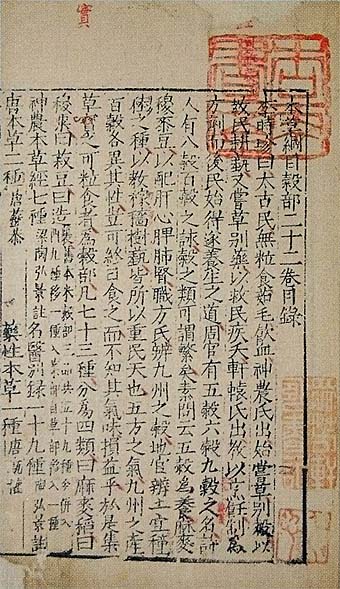 實
本草綱目穀部二十二卷目錄
李時珍曰太古民無粒食茹毛飲血神農氏出始嘗草別穀以
教民耕藝又嘗草別藥以救民疾夭軒轅氏出教以烹飪制為
方劑而後民始得遂養生之道周官有五穀六穀九穀之名詩
人有八穀百穀之詠穀之類可謂繁矣素問云五穀為養麻麥
稷黍豆以配肝心脾肺腎職方氏辨九州之穀地官辨土宜穜
稑之種以教稼穡樹藝皆所以重民天也五方之氣九州之產
百穀各異其性豈可終日食之而不知其氣味損益乎於是集
草實之可粒食者為穀部凡七十三種分為四類曰麻麥稻曰
稷粟曰菽豆曰造釀舊本米穀部三品共五十九種今併入
九種移一種入菜部自草部移入一種
神農本草經七種梁陶弘景註 名醫別錄一十九種陶弘景註
唐本草二種唐蘇恭 藥性本草一種唐甄權